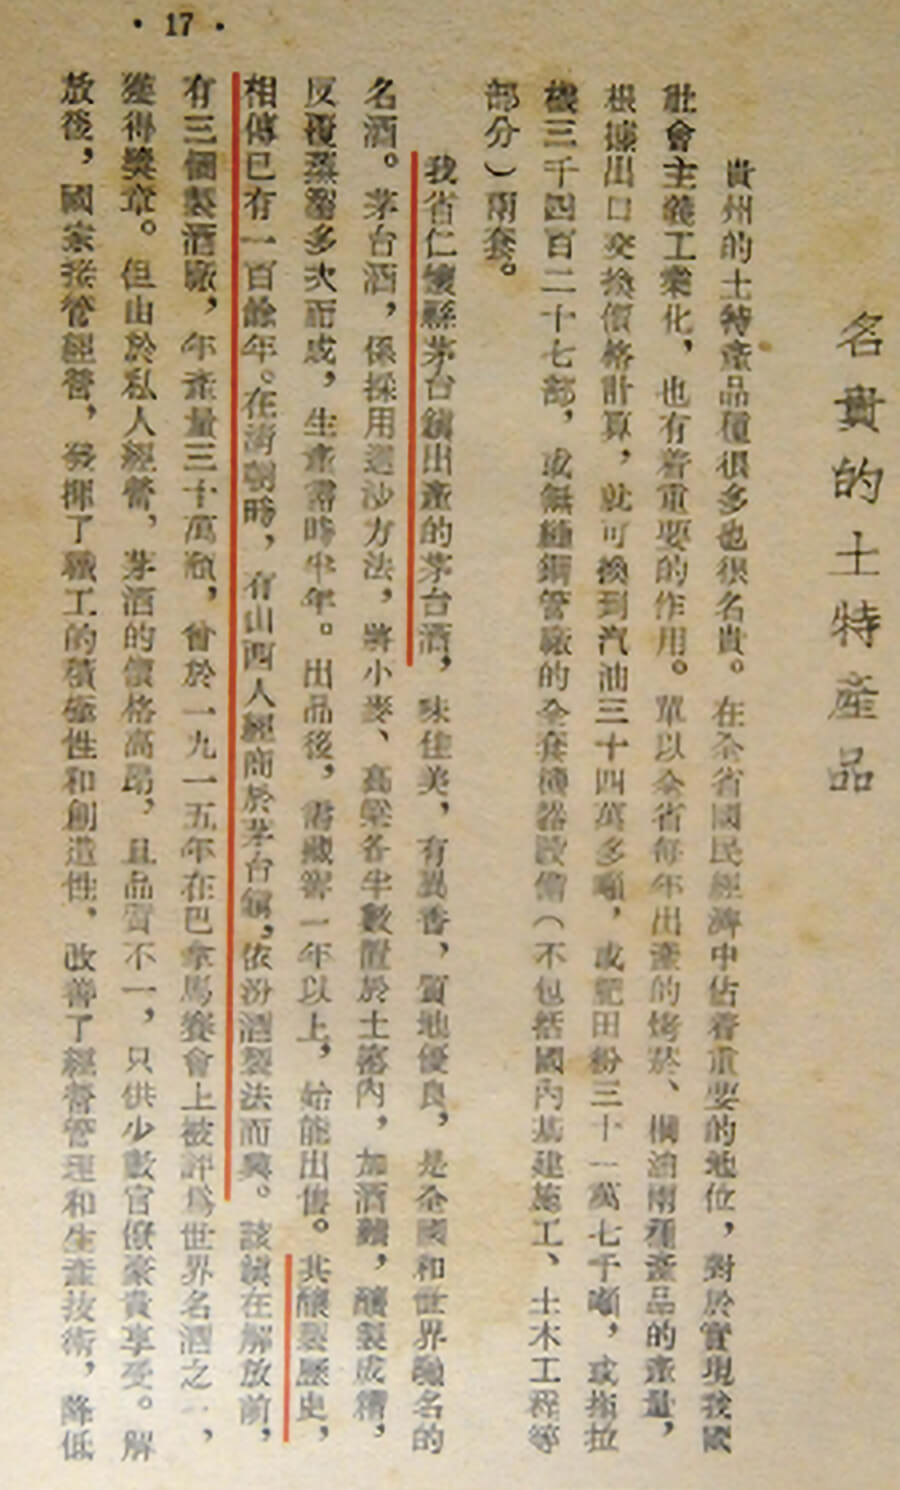 名貴的土特產品
貴州的土特產品種很多也很名貴。在全省國民經濟中佔着重要的地位，對於實現我國
社會主義工業化，也有着重要的作用。單以全省每年出產的烤菸、桐油兩種產品的產量，
根據出口交換價格計算，就可換到汽油三十四萬多噸，或肥田粉三十一萬七千噸，或拖拉
機三千四百二十七部，或無縫鋼管廠的全套機器設備（不包括國內基建施工、土木工程等
部分）兩套。
我省仁懷縣茅台鎮出產的茅台酒，味佳美，有異香，質地優良，是全國和世界聞名的
名酒。茅台酒，係採用迴沙方法，將小麥、高粱各半數置於土窖內，加酒麯，釀製成糟，
反覆蒸溜多次而成，生產需時半年。出品後，需藏窖一年以上，始能出售。其釀製歷史，
相傳已有一百餘年。在清朝時，有山西人經商於茅台鎮，依汾酒製法而興。該鎮在解放前，
有三個製酒廠，年產量三十萬瓶，曾於一九一五年在巴拿馬賽會上被評爲世界名酒之一，
獲得獎章。但由於私人經營，茅酒的價格高昂，且品質不一，只供少數官僚豪貴享受。解
放後，國家接管經營，發揮了職工的積極性和創造性，改善了經營管理和生產技術，降低
• 17 •